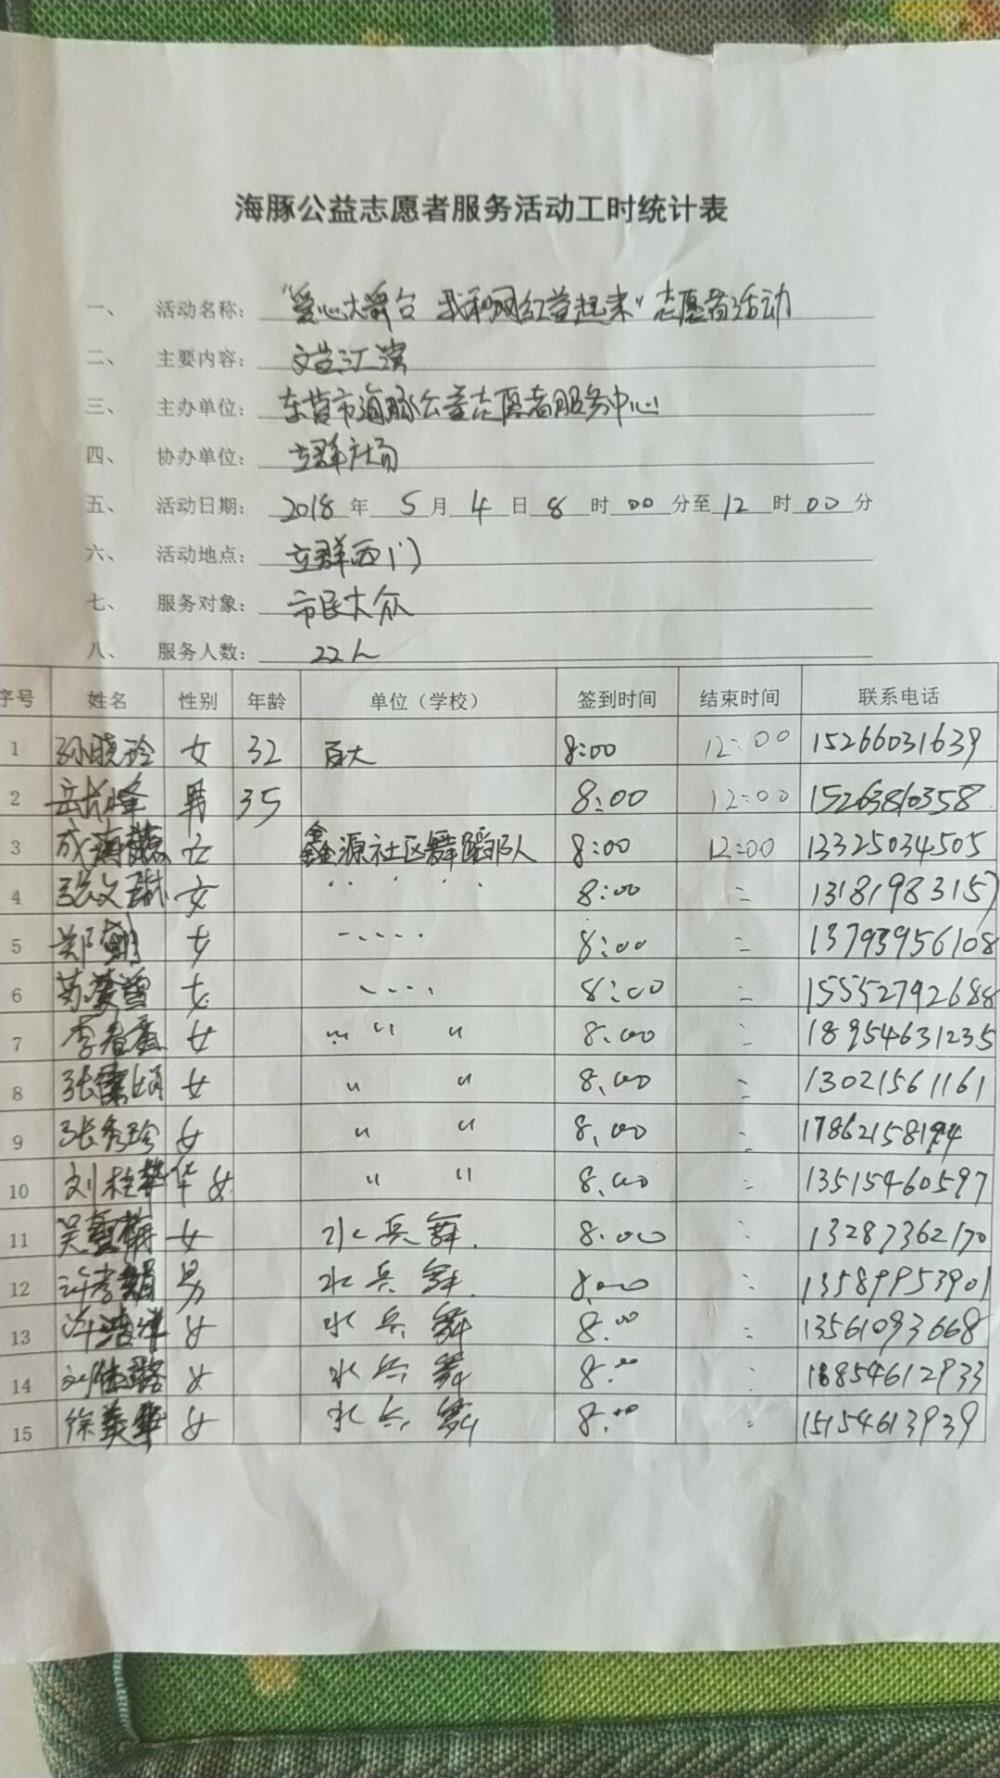 海豚公益志愿者服务活动工时统计表
一、 活动名称："爱心大舞台 我和网红益起来"志愿者活动
二、 主要内容：文艺汇演
三、 主办单位：东营市海豚公益志愿者服务中心
四、 协办单位：立群社局
五、 活动日期：2018年 5月 4日 8时 00分至 12时 00分
六、 活动地点：立群西门
七、 服务对象：市民大众
八、 服务人数：22人
序号 姓名 性别 年龄 单位（学校） 签到时间 结束时间 联系电话
1 孙晓玲 女 32 百大 8:00 12:00 15266031639
2 岳长峰 男 35 8:00 12:00 15263810358
3 成海 女 鑫源社区舞蹈队 8:00 12:00 13325034505
4 张文琳 女 8:00 13181983157
5 郑 女 8:00 13793956108
6 女 8:00 15552792688
7 李春 女 " " 8:00 18954631235
8 张 娟 女 " " 8:00 13021561161
9 张秀珍 女 " " 8:00 17862158194
10 刘桂华 女 " " 8:00 13515460597
11 吴 梅 女 水兵舞. 8:00 13287362170
12 许孝 男 水兵舞. 8:00 13589953901
13 女 水兵舞 8:00 13561093668
14 刘 女 水兵舞 8:00 18854612933
15 徐美华 女 水兵舞 8:00 15154613939